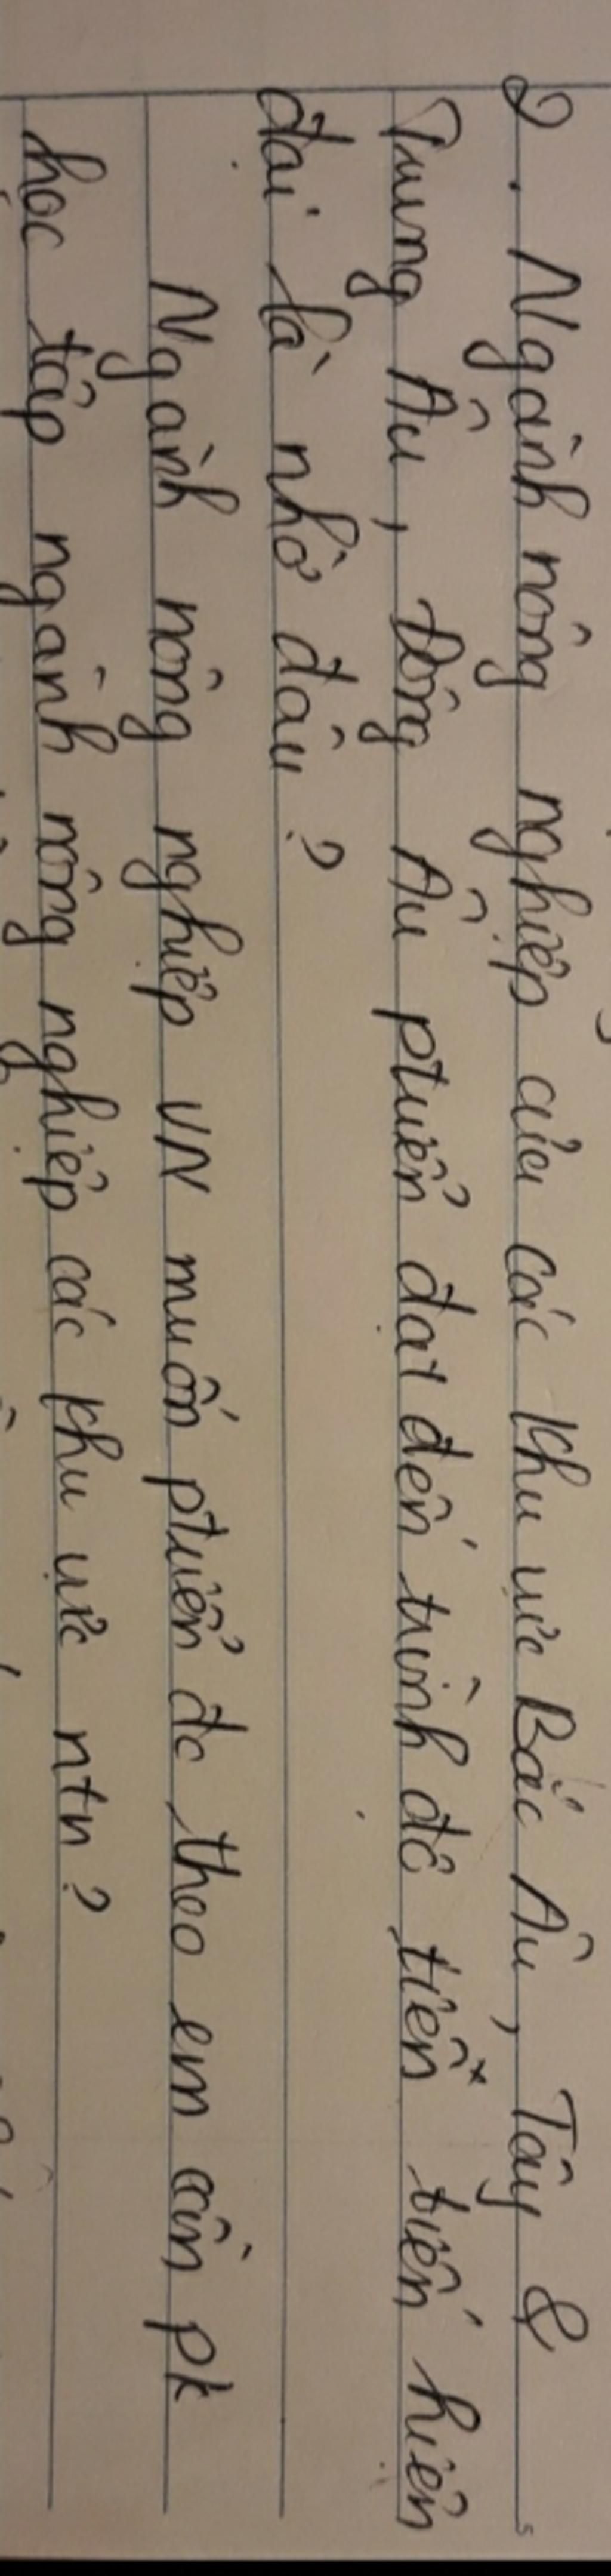 2. Ngành nông nghiệp của các khu vực Bắc Âu, Tây &
Trung Âu, Đông Âu ptriển đạt đến trình độ tiên tiến hiện
đại là nhờ đâu?
Ngành nông nghiệp VN muốn ptriển đc theo em cần pk
học tập ngành nông nghiệp các khu vực ntn?